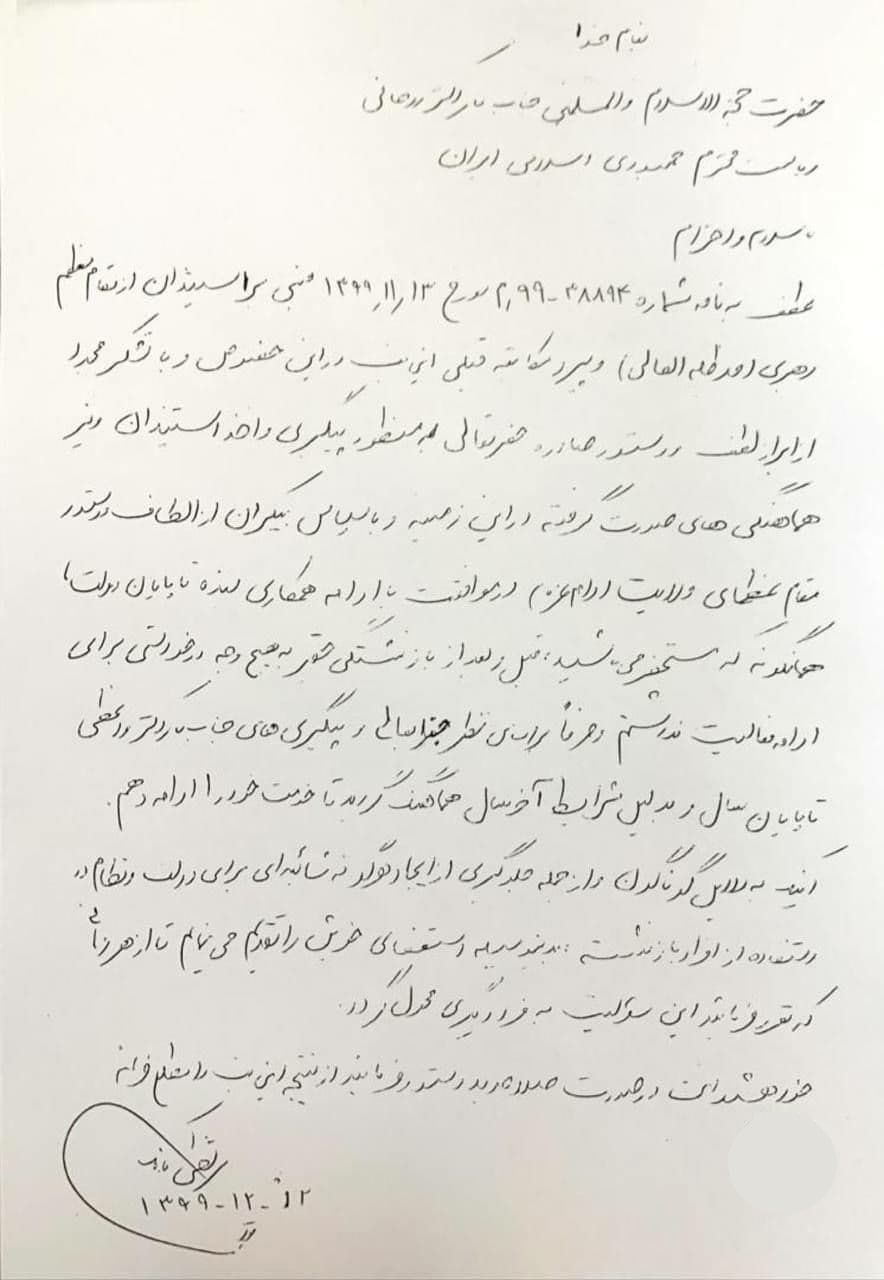 بنام خدا
حضرت حجة الاسلام والمسلمین جناب آقای دکتر روحانی
ریاست محترم جمهوری اسلامی ایران
با سلام و احترام
عطف به نامه شماره ۳۸۸۹۴-۹۹/م مورخ ۱۳۹۹/۱۱/۱۳ مبنی بر استیذان از مقام معظم
رهبری (مدظله العالی) و پیرو مکاتبه قبلی اینجانب در این خصوص و با تشکر مجدد
از ابراز لطف و دستور صادره حضرتعالی به منظور پیگیری و اخذ استیذان و نیز
هماهنگی های صورت گرفته در این زمینه و با سپاس بیکران از الطاف و دستور
مقام عظمای ولایت در موافقت با ادامه همکاری بنده تا پایان دولت،
همانگونه که مستحضر می باشید؛ قبل و بعد از بازنشستگی حقیر به هیچ وجه درخواستی برای
ادامه فعالیت نداشتم و صرفاً بر اساس نظر جنابعالی و پیگیری های جناب آقای دکتر واعظی
تا پایان سال و بدلیل شرایط آخر سال هماهنگ گردید تا خدمت خود را ادامه دهم.
اینک به دلایل گوناگون و از جمله جلوگیری از ایجاد هرگونه شائبه ای برای دولت و نظام در
استفاده از افراد بازنشسته؛ بدینوسیله استعفای خویش را تقدیم می نمایم تا از هر زمانی
که مقرر فرمایند این مسئولیت به فرد دیگری محول گردد.
خواهشمند است در صورت صلاحدید دستور فرمایند از نتیجه اینجانب را مطلع فرمایند
۱۳۹۹-۱۲-۱۲